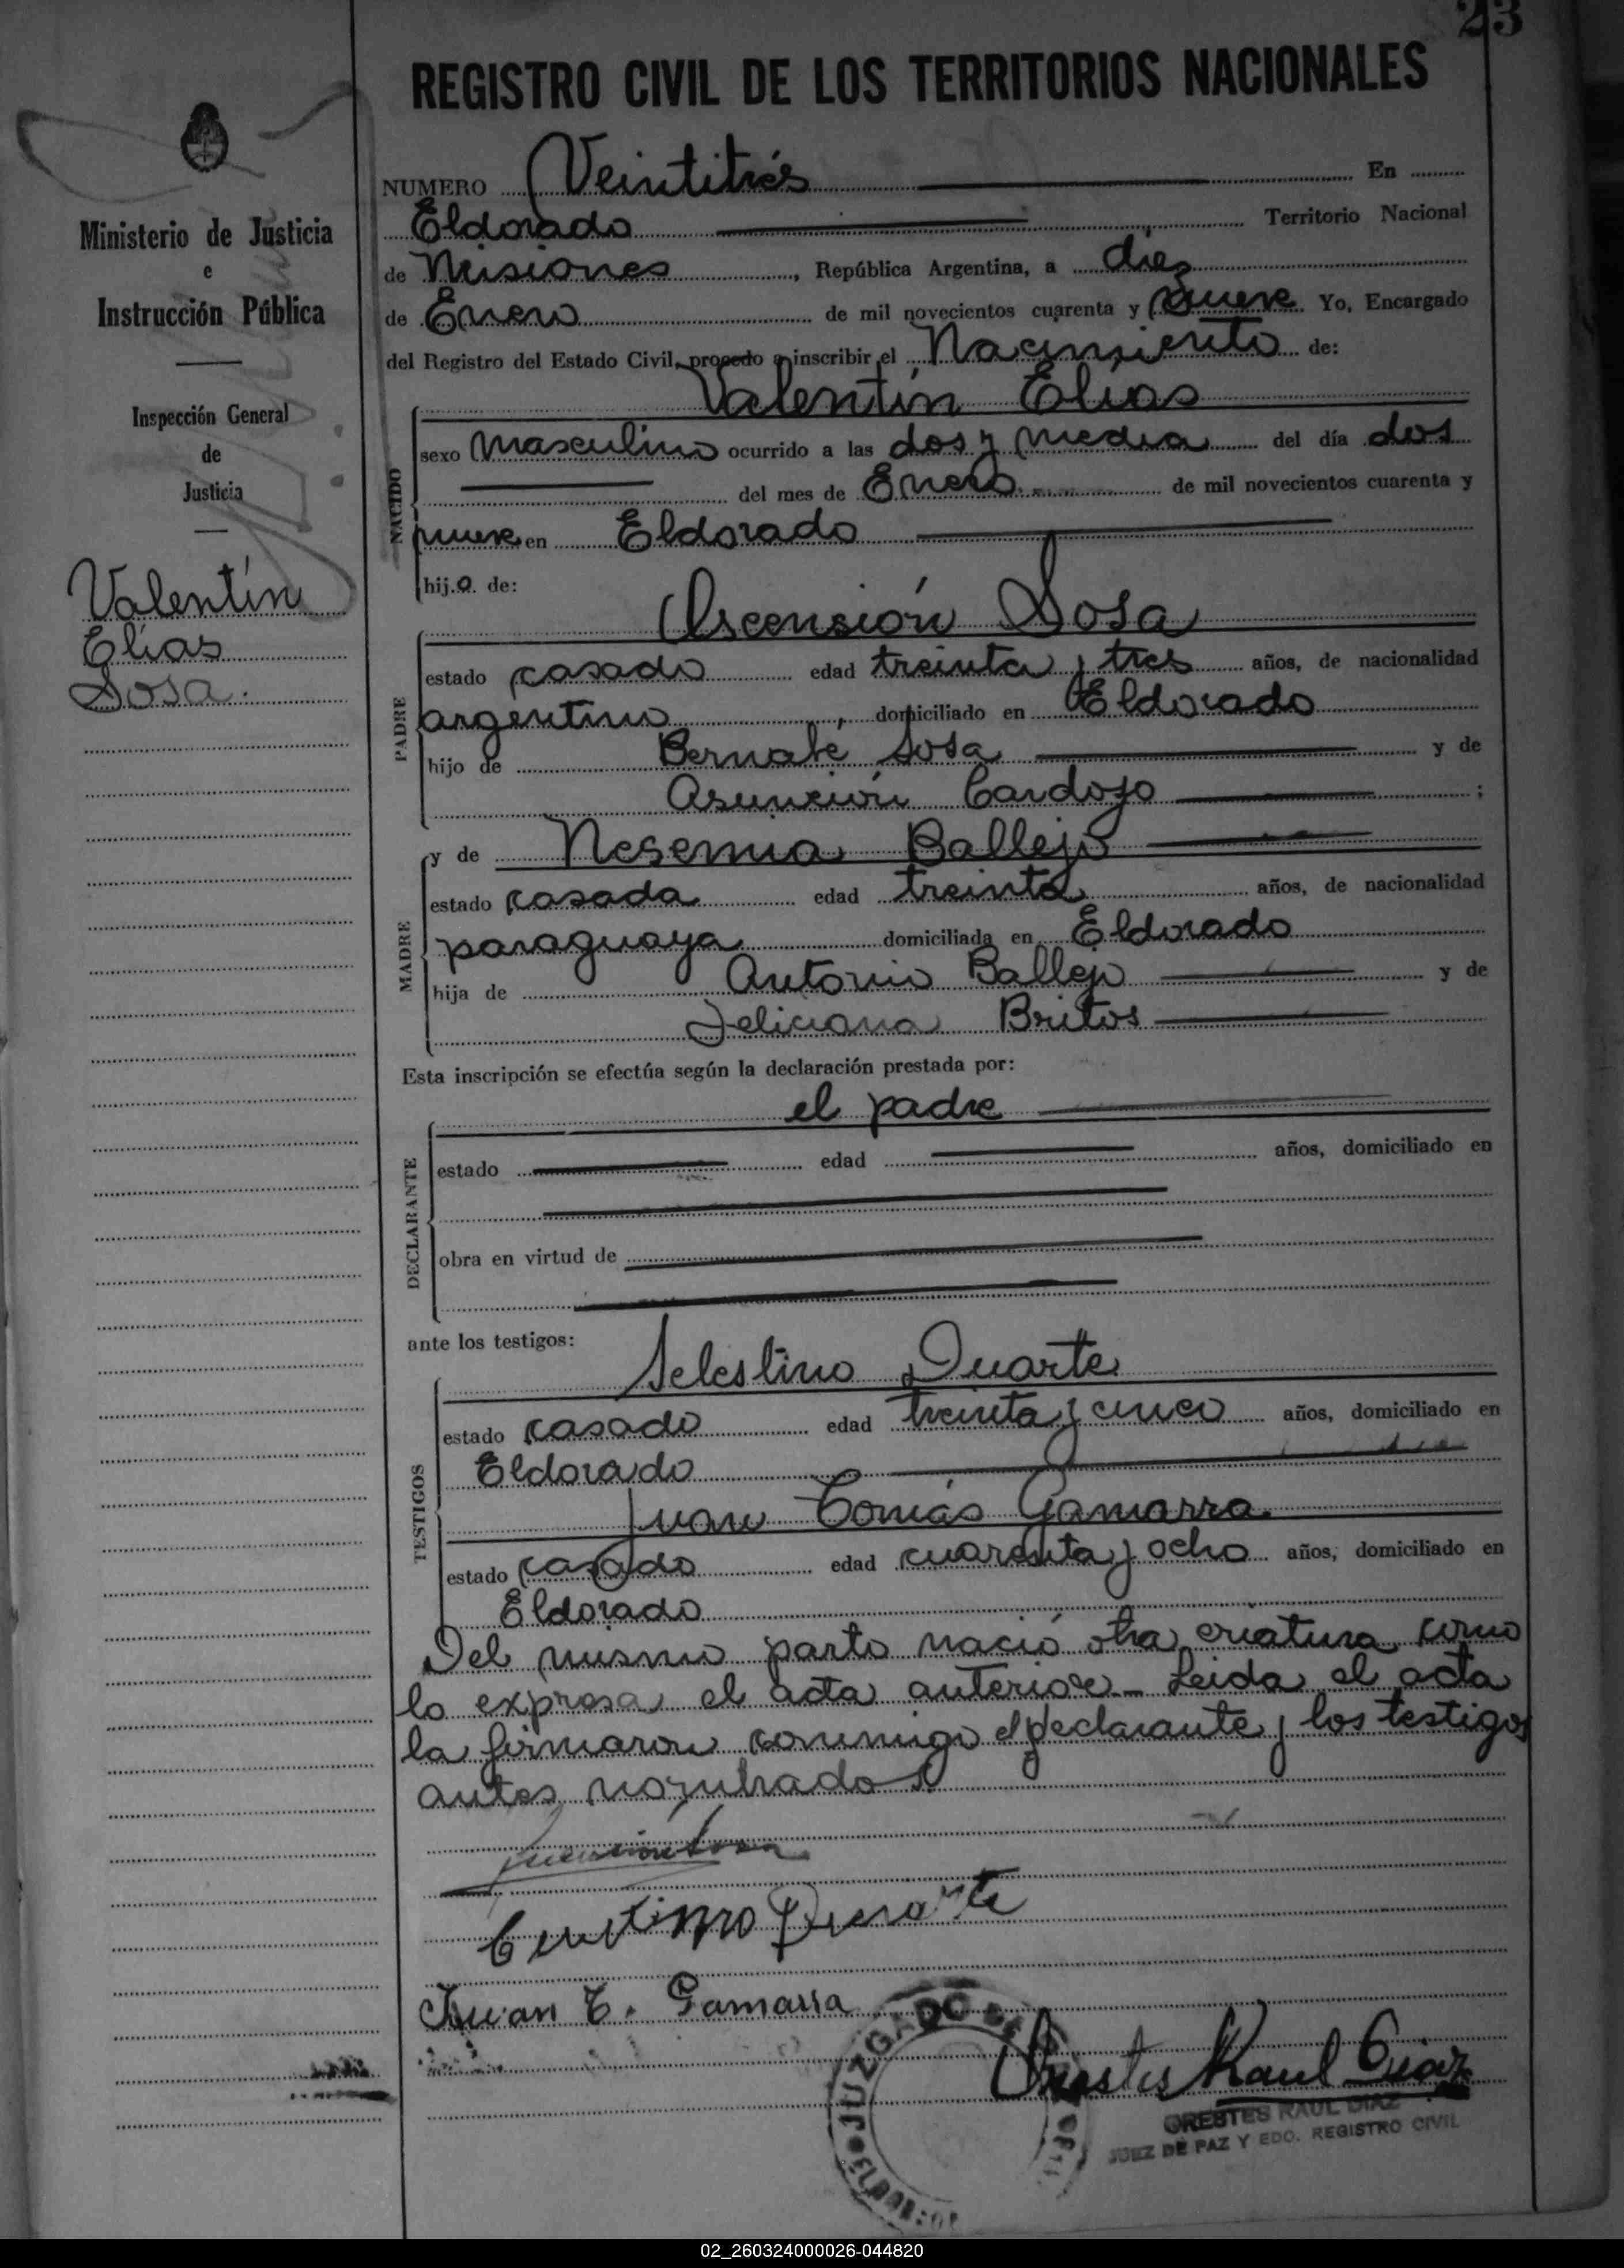 23
REGISTRO CIVIL DE LOS TERRITORIOS NACIONALES
Ministerio de Justicia
e
Instrucción Pública
Inspección General
de
Justicia
Valentín
Elías
Sosa.
NUMERO Veintitrés En
Eldorado Territorio Nacional
de Misiones, República Argentina, a diez
de Enero de mil novecientos cuarenta y nueve Yo, Encargado
del Registro del Estado Civil, procedo a inscribir el Nacimiento de:
Valentín Elías
NACIDO
sexo masculino ocurrido a las dos y media del día dos
del mes de Enero de mil novecientos cuarenta y
nueve en Eldorado
hijo de:
Ascensión Sosa
PADRE
estado casado edad treinta y tres años, de nacionalidad
argentino, domiciliado en Eldorado
hijo de Bernabé Sosa y de
Asunción Cardozo ;
y de Nesemia Ballejo
MADRE
estado casada edad treinta años, de nacionalidad
paraguaya domiciliada en Eldorado
hija de Antonio Ballejo y de
Feliciana Britos
Esta inscripción se efectúa según la declaración prestada por:
el padre
DECLARANTE
estado edad años, domiciliado en
obra en virtud de
ante los testigos:
Selestino Duarte
TESTIGOS
estado casado edad treinta y cinco años, domiciliado en
Eldorado
Juan Tomás Gamarra
estado casado edad cuarenta y ocho años, domiciliado en
Eldorado
Del mismo parto nació otra criatura como
lo expresa el acta anterior_ Leida el acta
la firmaron conmigo el declarante y los testigos
antes nombrados
Duarte
Juan T. Gamarra
JUZGADO DE
ELDORADO
Orestes Raul Diaz
ORESTES RAUL DIAZ
JUEZ DE PAZ Y EDO. REGISTRO CIVIL
02_260324000026-044820